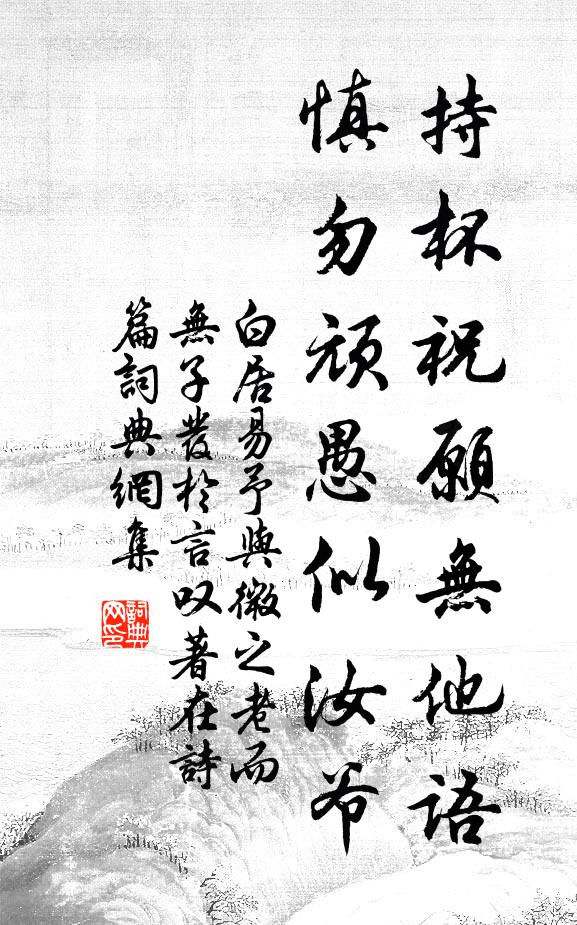 持杯祝願無他語
慎勿頑愚似汝爷
白居易予與微之老而
無子發於言叹著在詩
篇詞典網集
詞典
网印